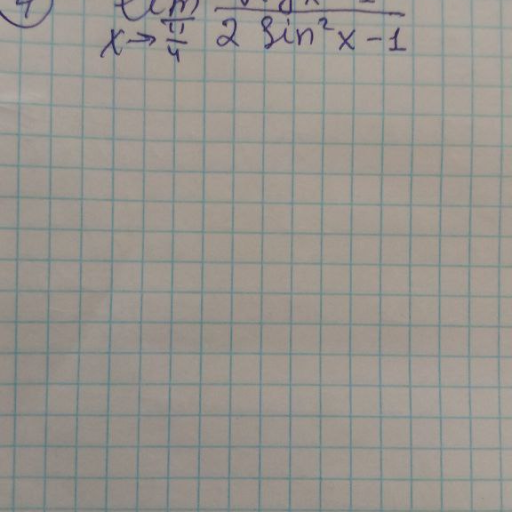 lim
x→π/4 2 sin²x-1